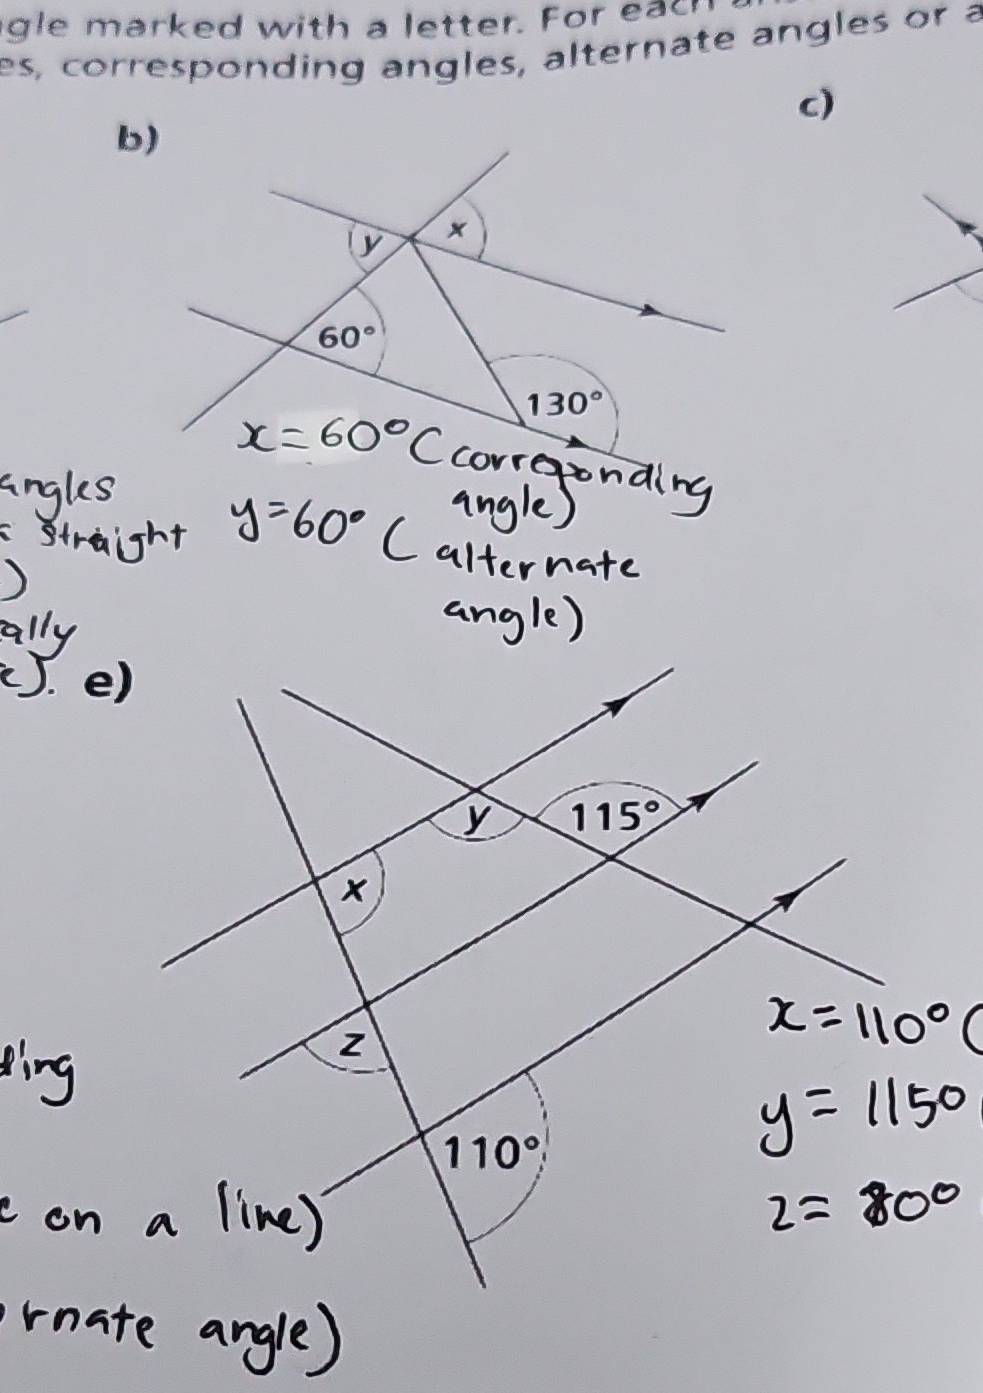 gle marked with a letter. For each
es, corresponding angles, alternate angles or a
b)
c)
y
x
60°
130°
x=60° (correspondingangle)
y=60° (alternate
angle)
angles
straight
)
ally
c). e)
y
115°
x
z
110°
x=110° (
y=115°
z=80°
ding
on a line)
rnate angle)